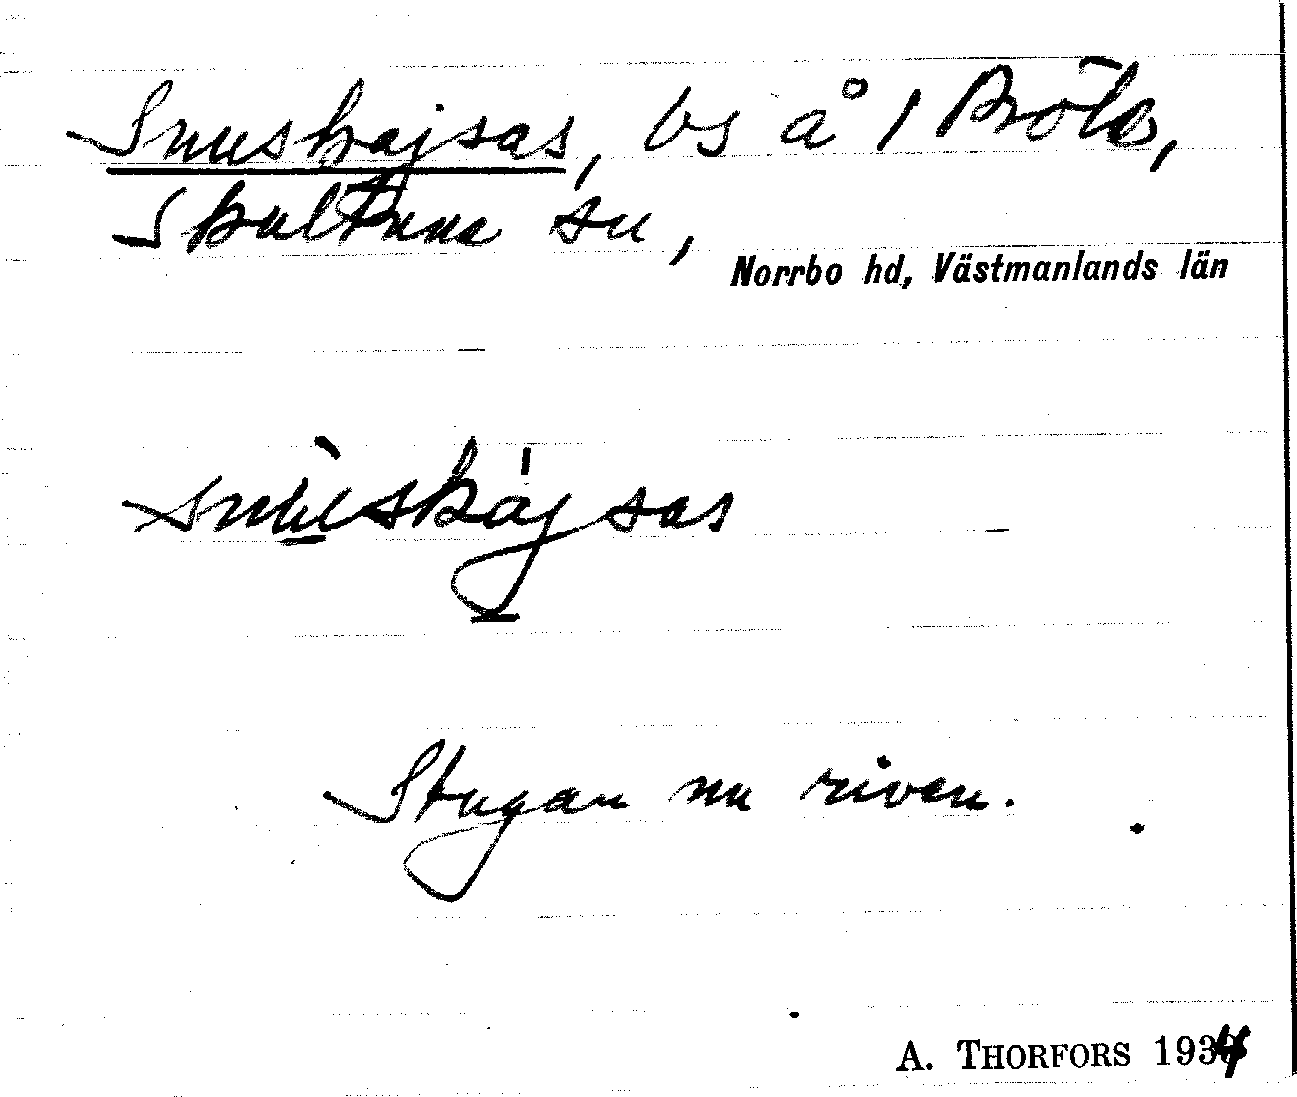 Snuskajsas, bs å 1 Bröta,
Skultuna sn,
Norrbo hd, Västmanlands län
snùskájsas
Stugan nu riven.
A. THORFORS 1934